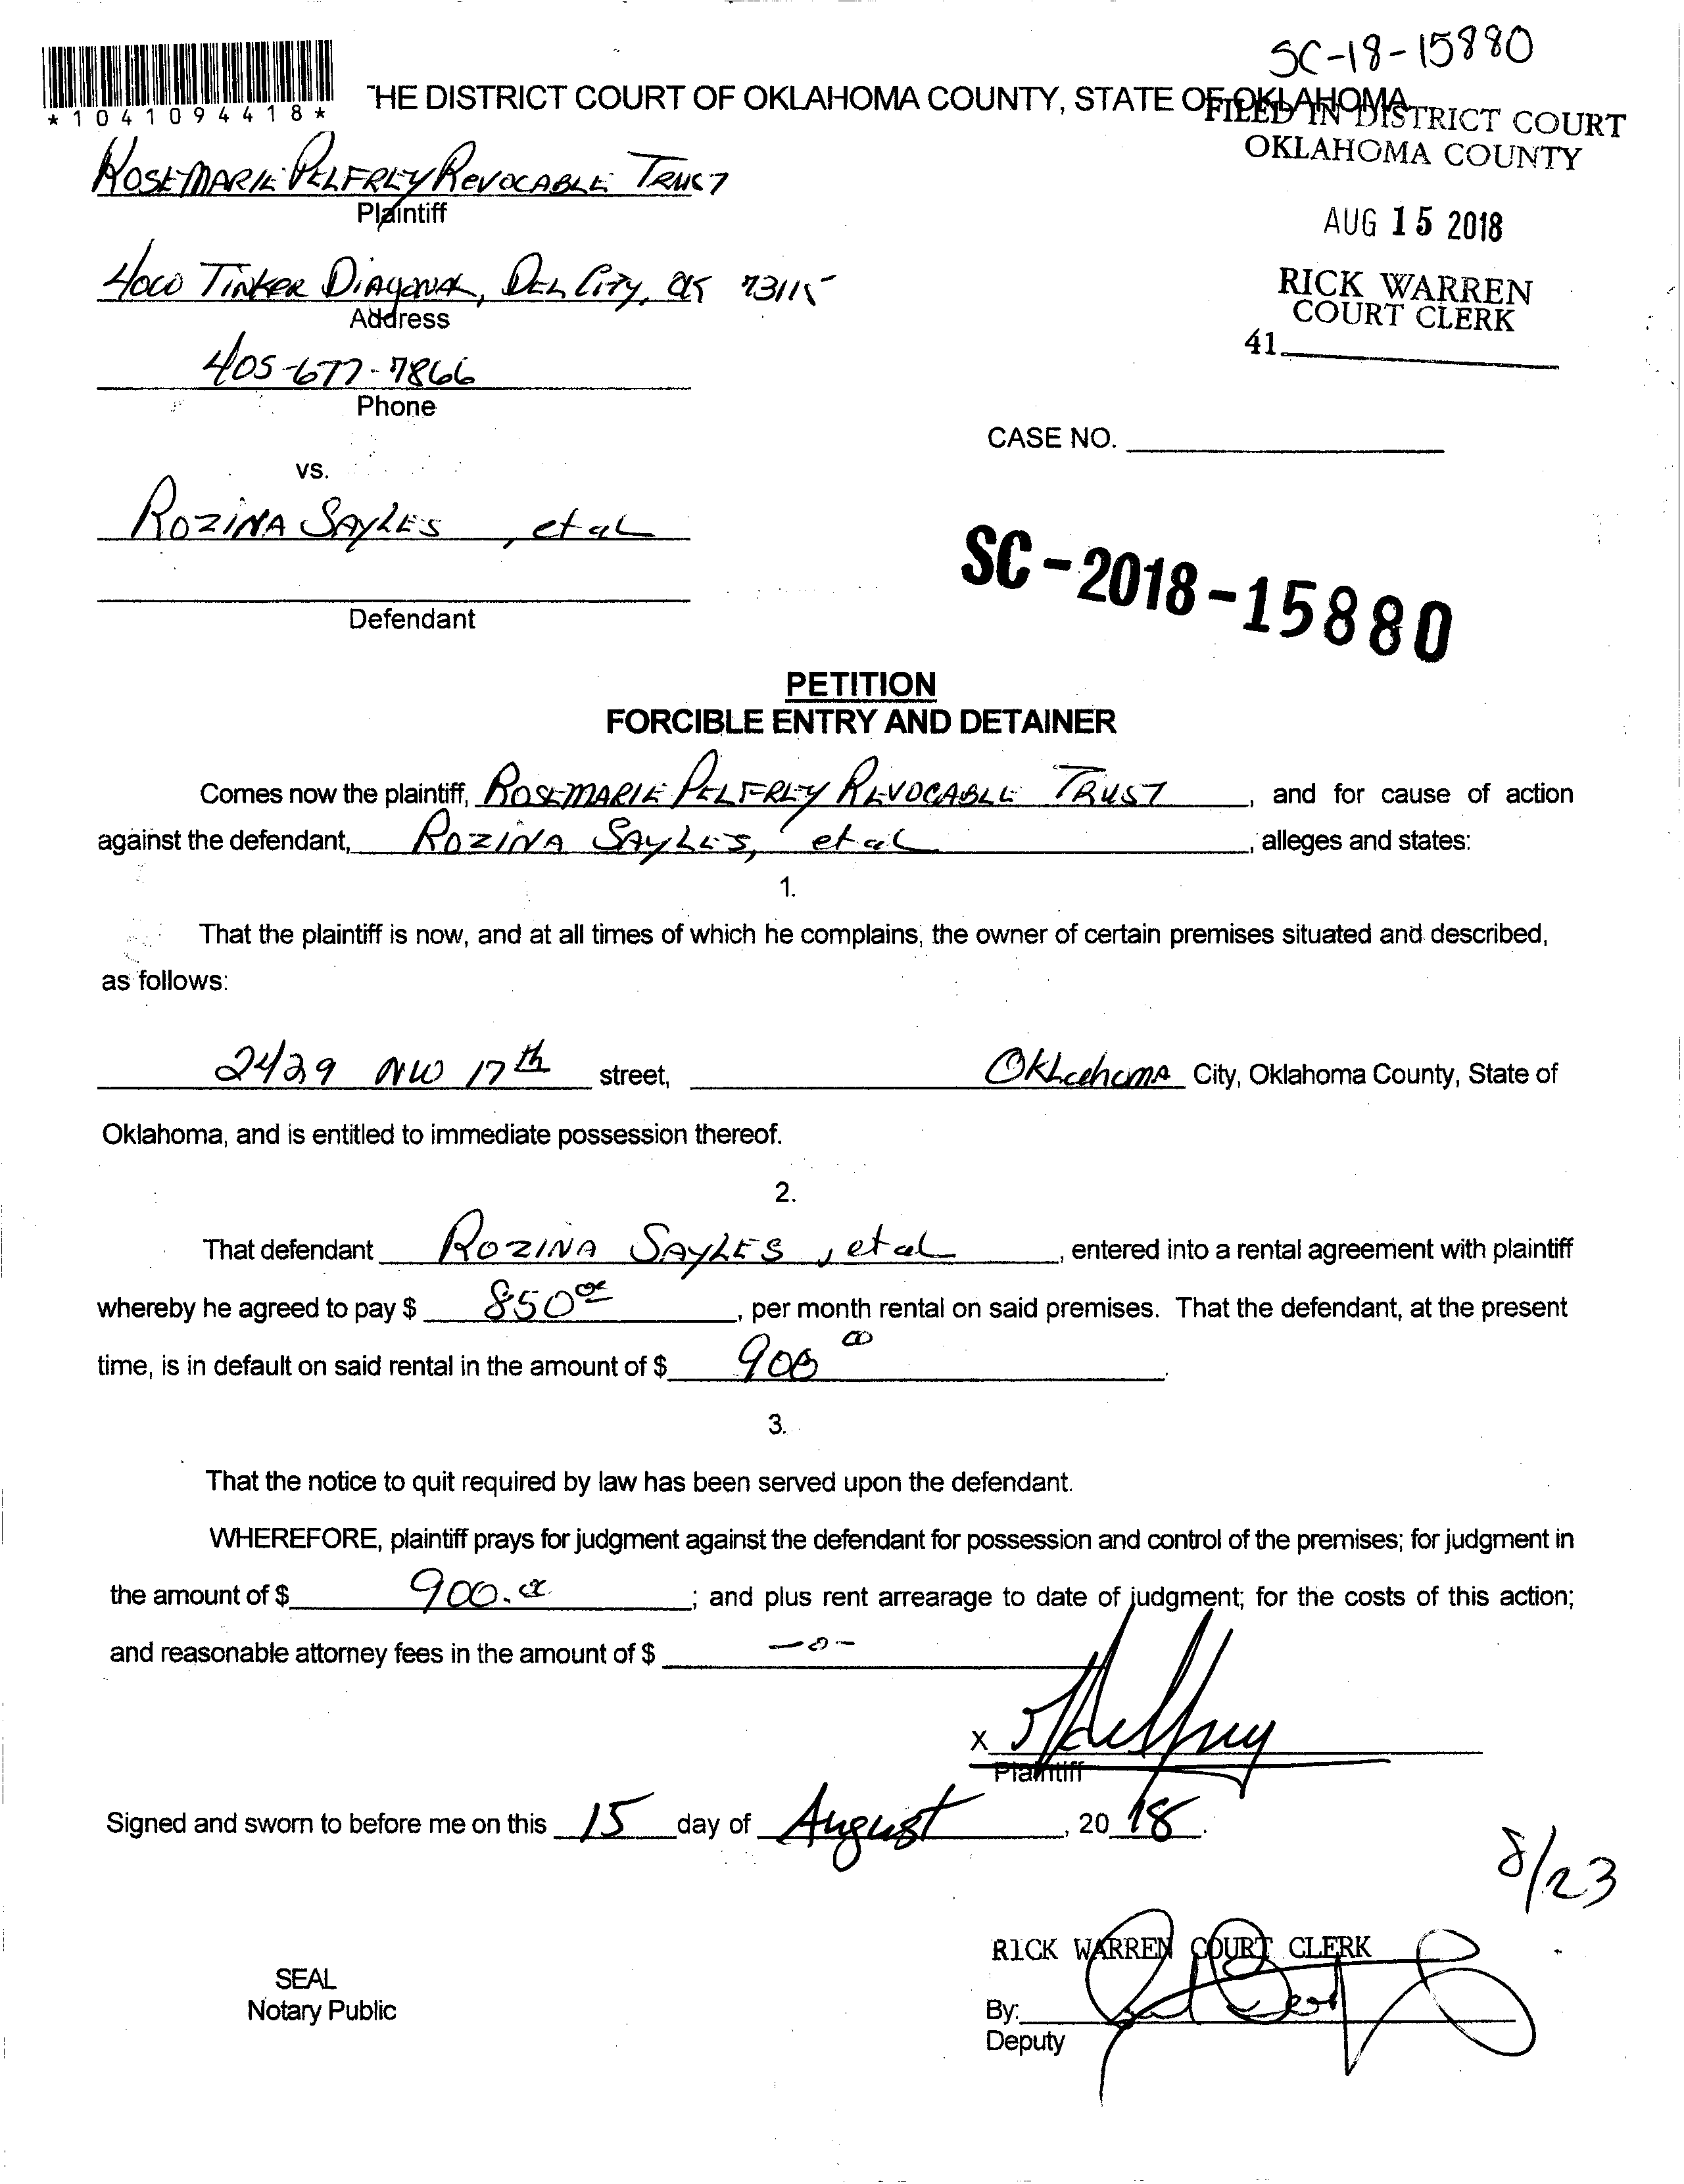 SC-18-15880
*1041094418*
THE DISTRICT COURT OF OKLAHOMA COUNTY, STATE OF OKLAHOMA
FILED IN DISTRICT COURT
OKLAHOMA COUNTY
ROSEMARIE PELFREY REVOCABLE TRUST
Plaintiff
AUG 15 2018
4000 TINKER DIAGONAL, DEL CITY, OK 73115
Address
RICK WARREN
COURT CLERK
41
405-677-7866
Phone
CASE NO.
vs.
ROZINA SAYLES, et al
Defendant
SC-2018-15880
PETITION
FORCIBLE ENTRY AND DETAINER
Comes now the plaintiff, ROSEMARIE PELFREY REVOCABLE TRUST, and for cause of action
against the defendant, ROZINA SAYLES, et al, alleges and states:
1.
That the plaintiff is now, and at all times of which he complains, the owner of certain premises situated and described,
as follows:
2429 NW 17th street, Oklahoma City, Oklahoma County, State of
Oklahoma, and is entitled to immediate possession thereof.
2.
That defendant ROZINA SAYLES, et al, entered into a rental agreement with plaintiff
whereby he agreed to pay $ 850 00, per month rental on said premises. That the defendant, at the present
time, is in default on said rental in the amount of $ 900 00.
3.
That the notice to quit required by law has been served upon the defendant.
WHEREFORE, plaintiff prays for judgment against the defendant for possession and control of the premises; for judgment in
the amount of $ 900.00; and plus rent arrearage to date of judgment; for the costs of this action;
and reasonable attorney fees in the amount of $ -0-
X
Plaintiff
Signed and sworn to before me on this 15 day of August, 2018.
8/23
RICK WARREN COURT CLERK
SEAL
Notary Public
By:
Deputy